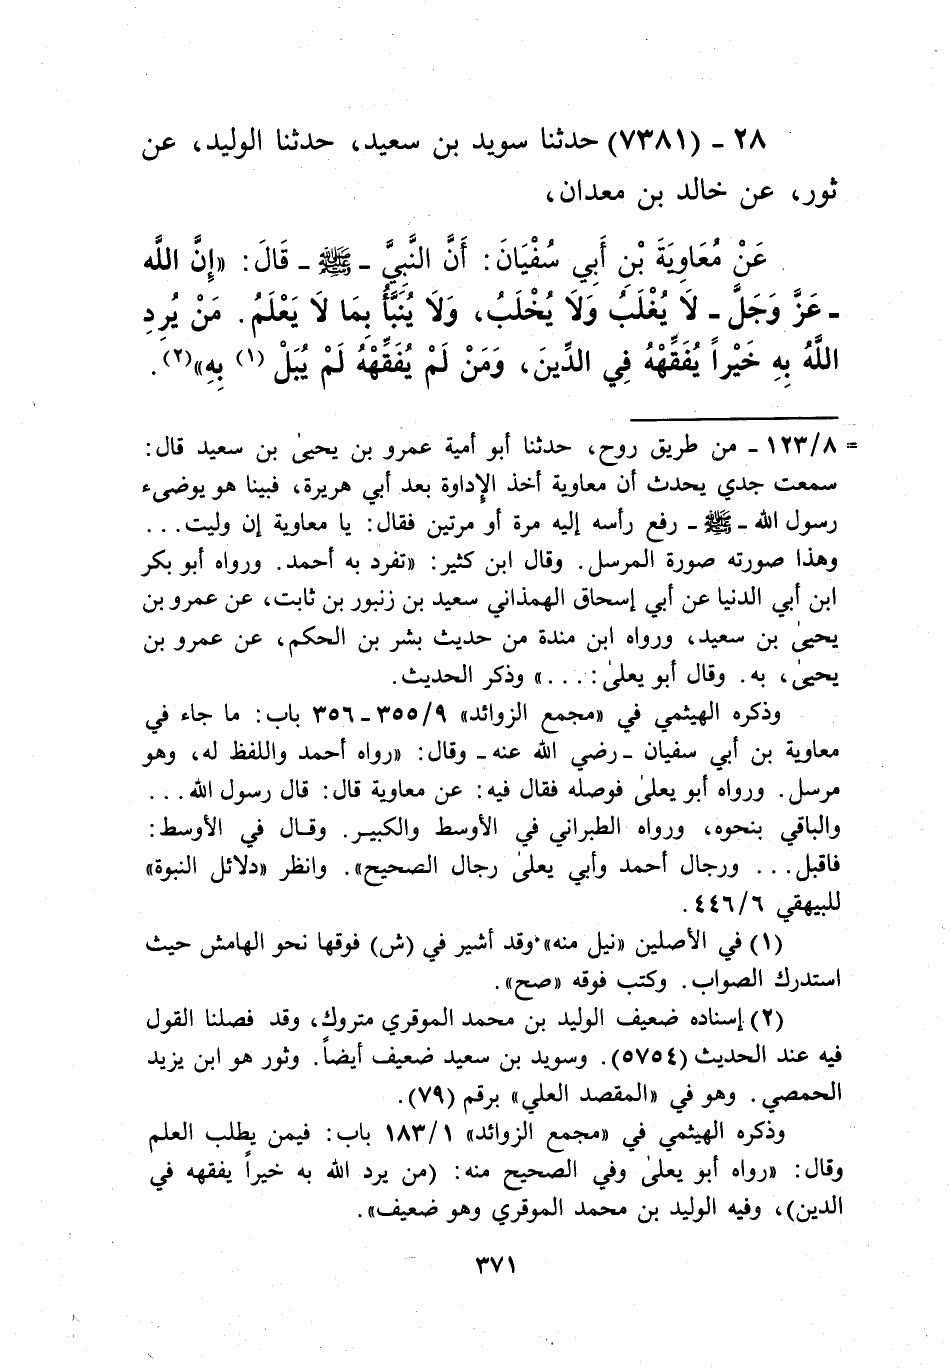 ٢٨ ـ (٧٣٨١) حدثنا سويد بن سعيد، حدثنا الوليد، عن
ثور، عن خالد بن معدان،
عَنْ مُعَاوِيَةَ بْنِ أَبِي سُفْيَانَ: أَنَّ النَّبِيَّ ـ ﷺ ـ قَالَ: «إِنَّ اللَّه
ـ عَزَّ وَجَلَّ ـ لَا يُغْلَبُ وَلَا يُخْلَبُ، وَلَا يُنَبَّأُ بِمَا لَا يَعْلَمُ. مَنْ يُرِدِ
اللَّهُ بِهِ خَيْراً يُفَقِّهْهُ فِي الدِّينَ، وَمَنْ لَمْ يُفَقِّهْهُ لَمْ يُبَلْ (١) بِهِ»(٢).
= ١٢٣/٨ ـ من طريق روح، حدثنا أبو أمية عمرو بن يحيىٰ بن سعيد قال:
سمعت جدي يحدث أن معاوية أخذ الإداوة بعد أبي هريرة، فبينا هو يوضىء
رسول الله ـ ﷺ ـ رفع رأسه إليه مرة أو مرتين فقال: يا معاوية إن وليت...
وهذا صورته صورة المرسل. وقال ابن كثير: «تفرد به أحمد. ورواه أبو بكر
ابن أبي الدنيا عن أبي إسحاق الهمذاني سعيد بن زنبور بن ثابت، عن عمرو بن
يحيىٰ بن سعيد، ورواه ابن مندة من حديث بشر بن الحكم، عن عمرو بن
يحيىٰ، به. وقال أبو يعلىٰ: ...» وذكر الحديث.
وذكره الهيثمي في «مجمع الزوائد» ٣٥٥/٩ـ٣٥٦ باب: ما جاء في
معاوية بن أبي سفيان ـ رضي الله عنه ـ وقال: «رواه أحمد واللفظ له، وهو
مرسل. ورواه أبو يعلىٰ فوصله فقال فيه: عن معاوية قال: قال رسول الله...
والباقي بنحوه، ورواه الطبراني في الأوسط والكبير. وقال في الأوسط:
فاقبل... ورجال أحمد وأبي يعلىٰ رجال الصحيح». وانظر «دلائل النبوة»
للبيهقي ٤٤٦/٦.
(١) في الأصلين «نيل منه» وقد أشير في (ش) فوقها نحو الهامش حيث
استدرك الصواب. وكتب فوقه «صح».
(٢) إسناده ضعيف الوليد بن محمد الموقري متروك، وقد فصلنا القول
فيه عند الحديث (٥٧٥٤). وسويد بن سعيد ضعيف أيضاً. وثور هو ابن يزيد
الحمصي. وهو في «المقصد العلي» برقم (٧٩).
وذكره الهيثمي في «مجمع الزوائد» ١٨٣/١ باب: فيمن يطلب العلم
وقال: «رواه أبو يعلىٰ وفي الصحيح منه: (من يرد الله به خيراً يفقهه في
الدين)، وفيه الوليد بن محمد الموقري وهو ضعيف».
٣٧١